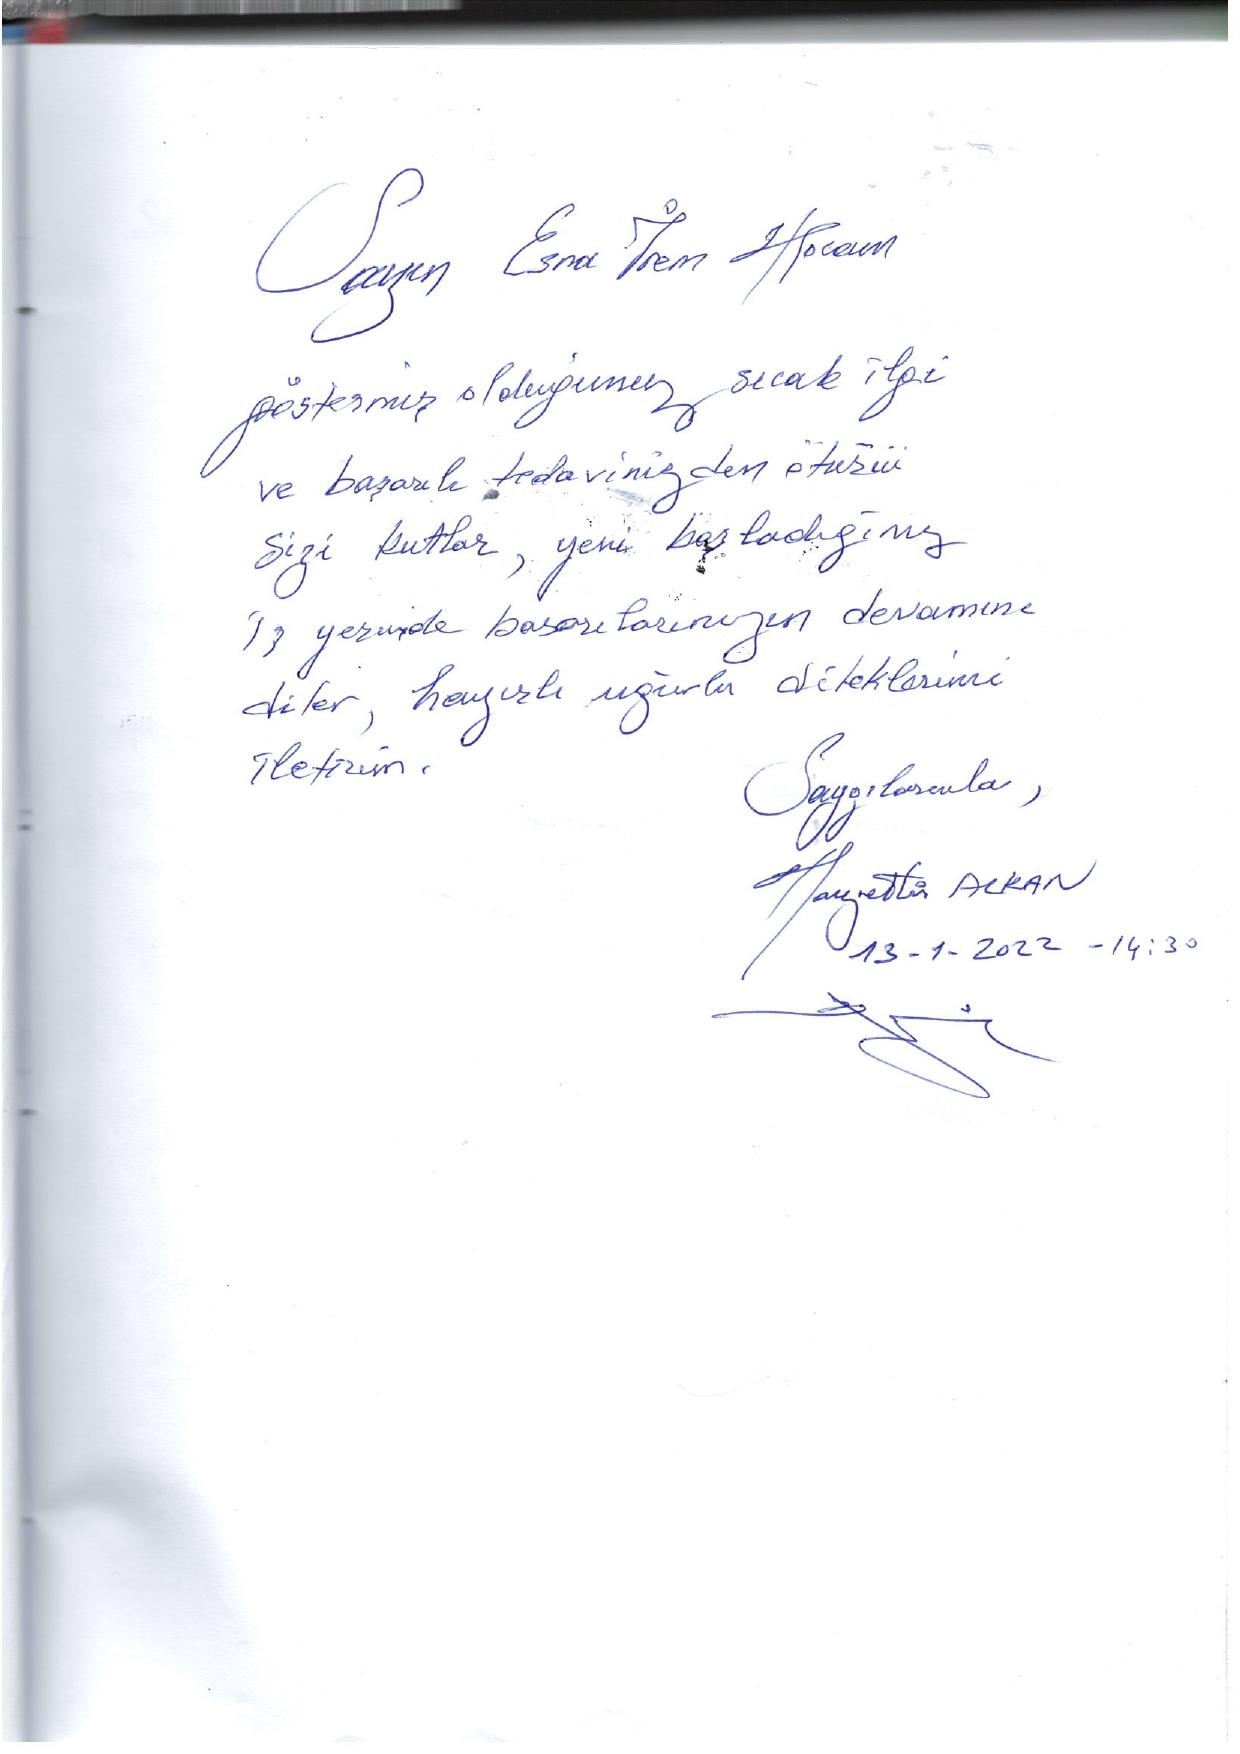 Sayın Esra İrem Hocam
göstermiş olduğunuz sıcak ilgi
ve başarılı tedavinizden ötürü
sizi kutlar, yeni başladığınız
iş yerinde başarılarınızın devamını
diler, hayırlı uğurlu dileklerimi
iletirim.
Saygılarımla,
Hayrettin ALKAN
13-1-2022 -14:30